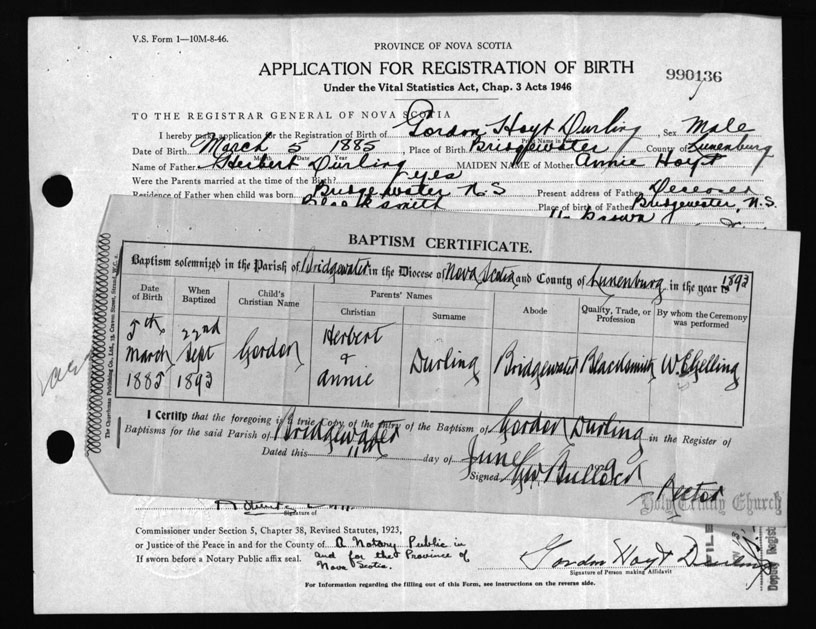 V.S. Form 1—10M-8-46.
PROVINCE OF NOVA SCOTIA
APPLICATION FOR REGISTRATION OF BIRTH
990136
Under the Vital Statistics Act, Chap. 3 Acts 1946
TO THE REGISTRAR GENERAL OF NOVA SCOTIA
I hereby make application for the Registration of Birth of Gordon Hoyt Durling Sex Male
Date of Birth March 5 1885 Place of Birth Bridgewater County of Lunenburg
Month Date Year
Name of Father Herbert Durling MAIDEN NAME of Mother Annie Hoyt
Were the Parents married at the time of the Birth? yes
Residence of Father when child was born Bridgewater N.S Present address of Father Deceased
Blacksmith Place of birth of Father Bridgewater, N.S.
Brown
BAPTISM CERTIFICATE.
Baptism solemnized in the Parish of Bridgewater in the Diocese of Nova Scotia and County of Lunenburg in the year 1893
Date of Birth
When Baptized
Child's Christian Name
Parents' Names
Christian
Surname
Abode
Quality, Trade, or Profession
By whom the Ceremony was performed
5th March 1885
22nd Sept 1893
Gordon
Herbert & Annie
Durling
Bridgewater
Blacksmith
W. E. Gelling
I Certify that the foregoing is a true Copy of the entry of the Baptism of Gordon Durling in the Register of
Baptisms for the said Parish of Bridgewater
Dated this 11th day of June
Signed Bullock
Rector
Holy Trinity Church
The Churchman Publishing Co., Ltd.,
Signature of
Commissioner under Section 5, Chapter 38, Revised Statutes, 1923,
or Justice of the Peace in and for the County of A Notary Public in
If sworn before a Notary Public affix seal. and for the Province of
Nova Scotia.
Gordon Hoyt Durling
Signature of Person making Affidavit
FILE
Deputy Regist
For Information regarding the filling out of this Form, see instructions on the reverse side.